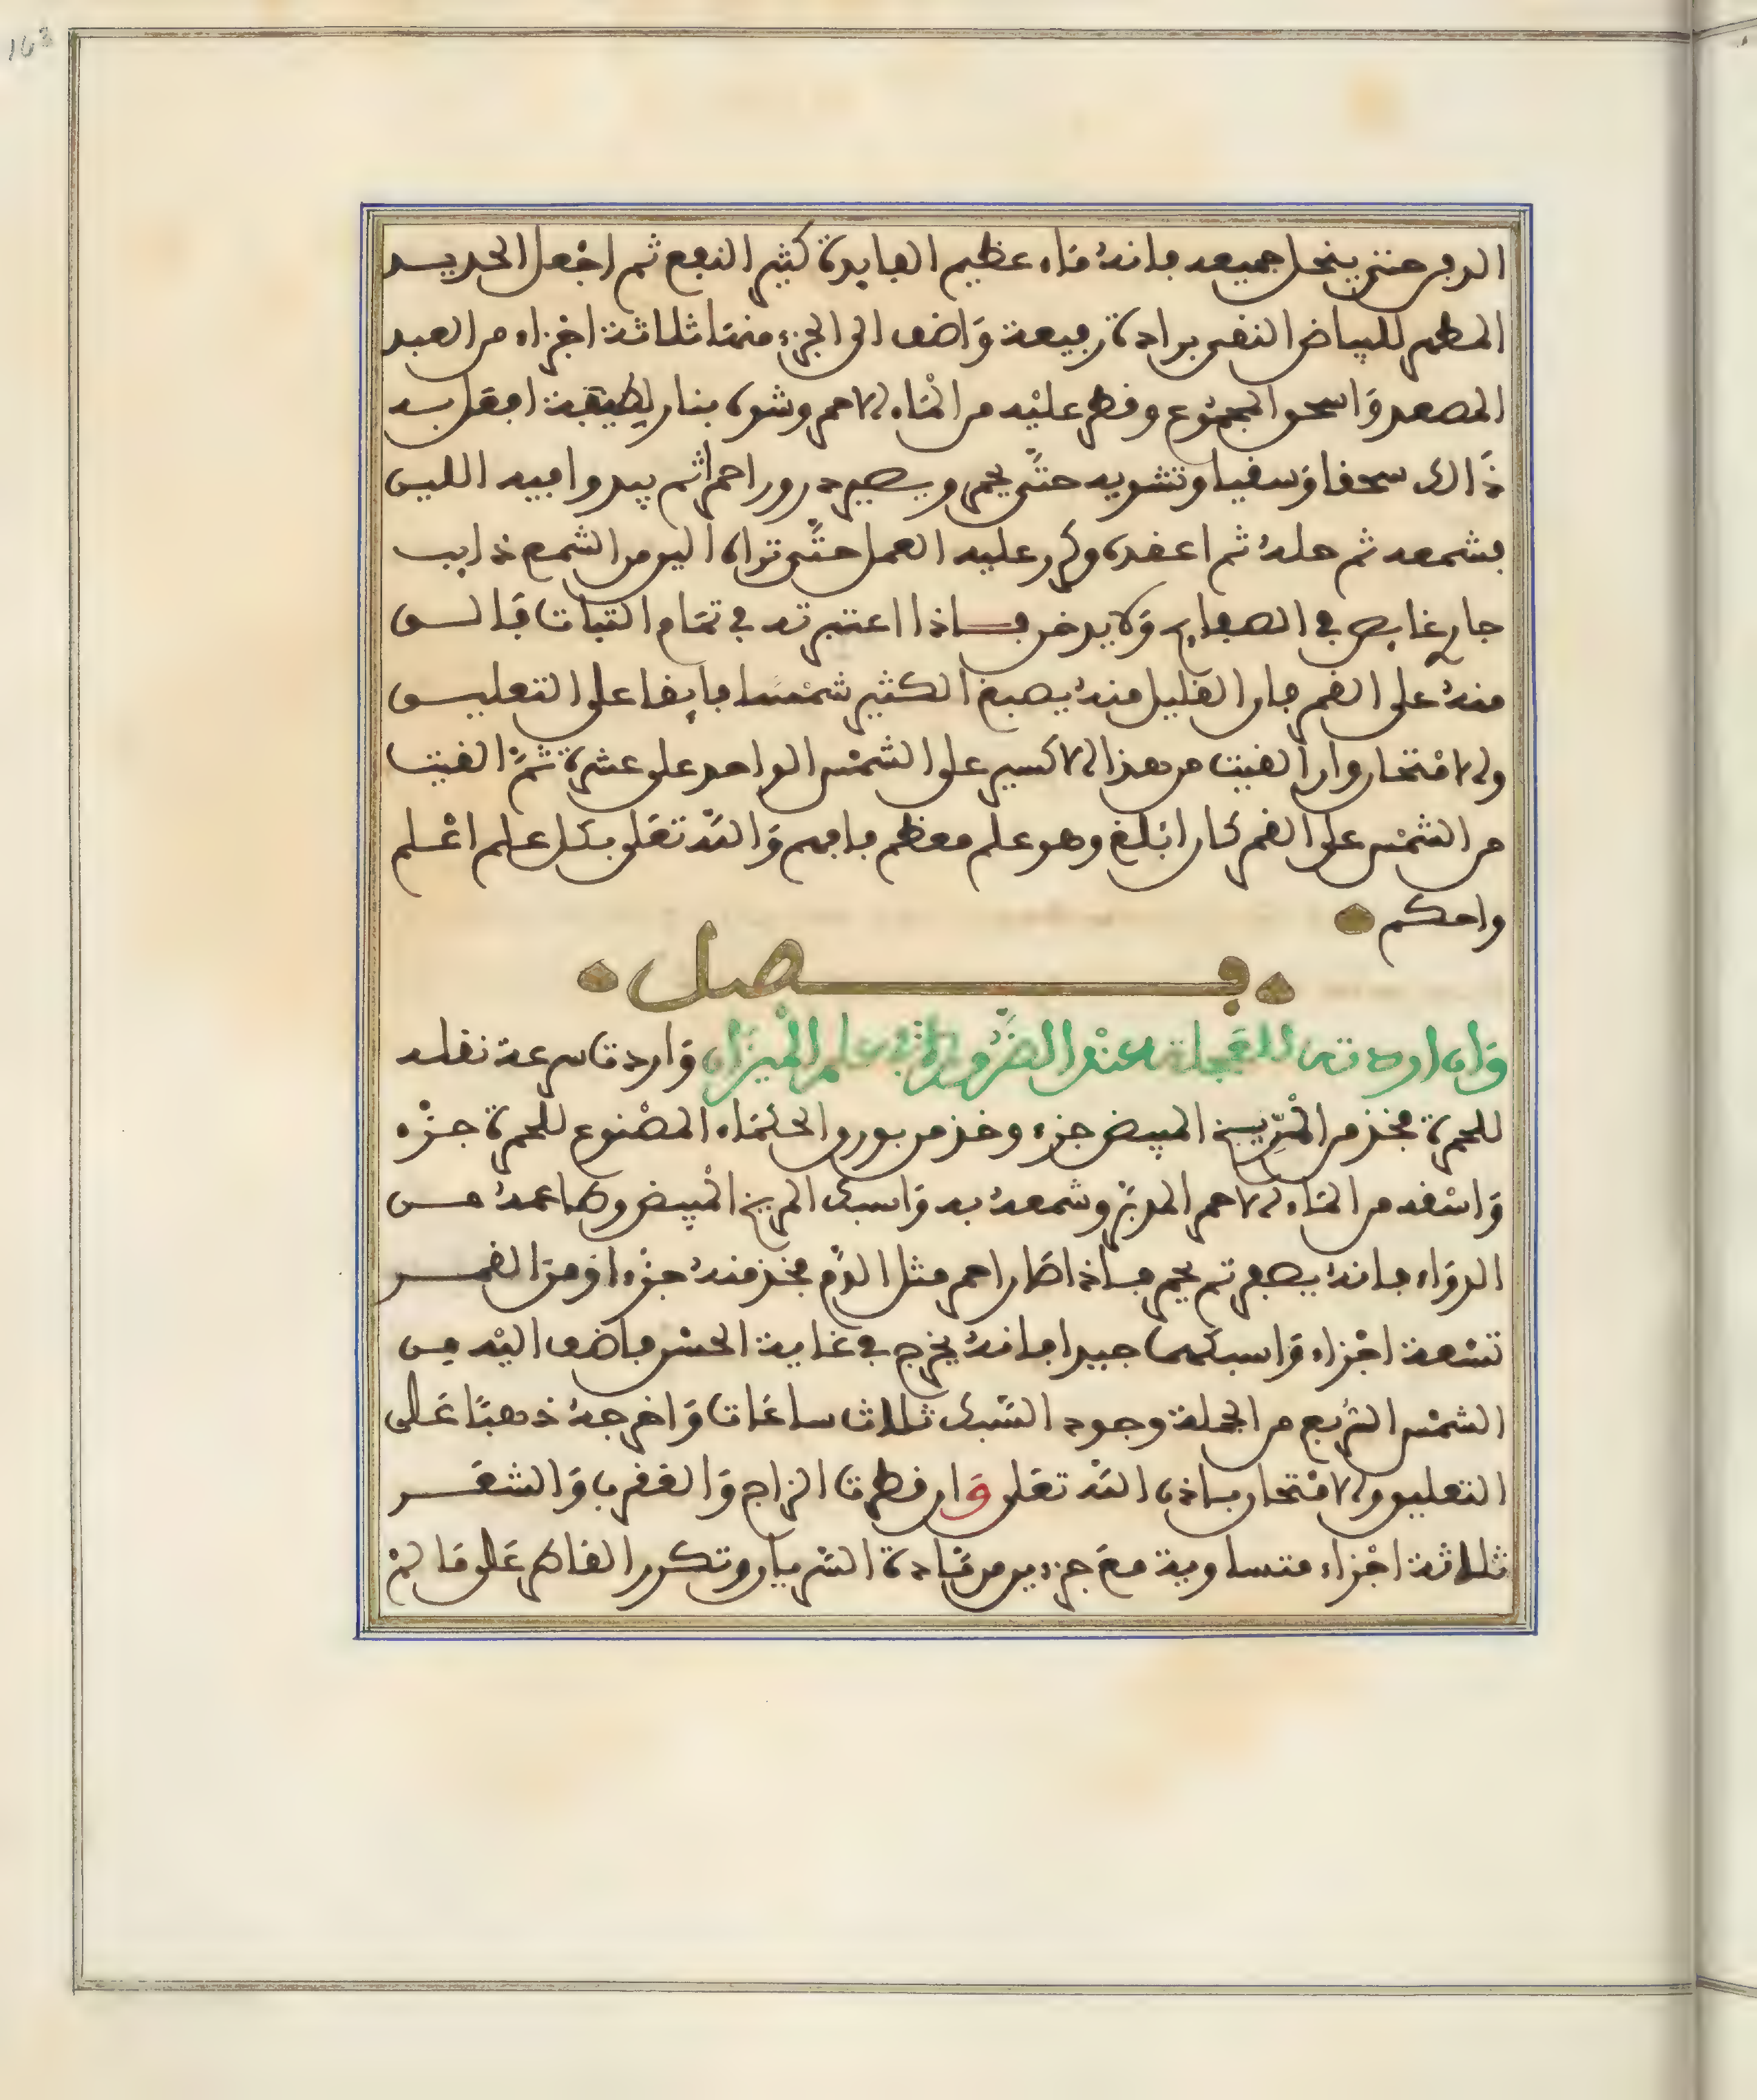 163
الدبر حتى ينحل جميعه فانه ماء عظيم الفايدة كثير النفع ثم اجعل الحديد
المطهر للبياض النفى برادة رفيعة وَاضف الى الجزء منهَا ثلاثة اجزاء من العبد
المصعد وَاسحق المجموع وقطر عليْه من المَاء الاحمر وشوه بنار لطيفة افعل به
ذَالك سحقا وَسقيا وتشويه حتَّى يحمر ويصير درور احمر ثم يبدوا فيه اللين
فشمعه ثم حلهُ ثم اعقده وكرر عليه العمل حتَّى تراه الين من الشمع ذايب
جار غايص في الصفايح وَلا يدخن فاذا اعتبرته في تمَام الثبات فَالق
منهُ على القمر فان القليل منهُ يصبغ الكثير شمْسا فايقا على التعليق
والامْتحان وان القيت من هذا الاكسير على الشمْس الواحد على عشرة ثمَّ القيت
من الشمْس على القمر كان ابْلغ وهو علم معظم فافهم وَاللَّه تعَلى بكل علم اعْلم
واحكم
فصل
وَان اردت العجلة عنْد الضَّرورة في علم الْميزان وَاردت سرعة نقله
للحمرة فخذ من الْمرِّيخ المبيض جزء وخذ من بورق الحكمَاء المصْنوع للحمرة جزْء
وَاسْقه من المَاء الاحمر المدبَّر وشمعهُ به وَاسبك المريخ الْمبيض وطاعمهُ من
الدوَاء فانهُ يصفر ثم يحمر فاذا صَار احمر مثل الدَّم فخذ منهُ جزْء اوْ منَ القمر
تسْعة اجْزاء وَاسبكهما جيدا فانهُ يخرج في غاية الحسْن فاضف اليْه من
الشمْس الرُبع من الجملة وجود السَّبك ثلاث ساعَات وَاخرجهُ ذهبًا عَلى
التعليق والامْتحان باذن اللَّه تعَلى وَان قطرت الزاج وَالعقرب وَالشعَر
ثلاثة اجْزاء متساوية معَ جزءين من مَادة الشريان وتكرر القاطر عَلى مَا لمْ